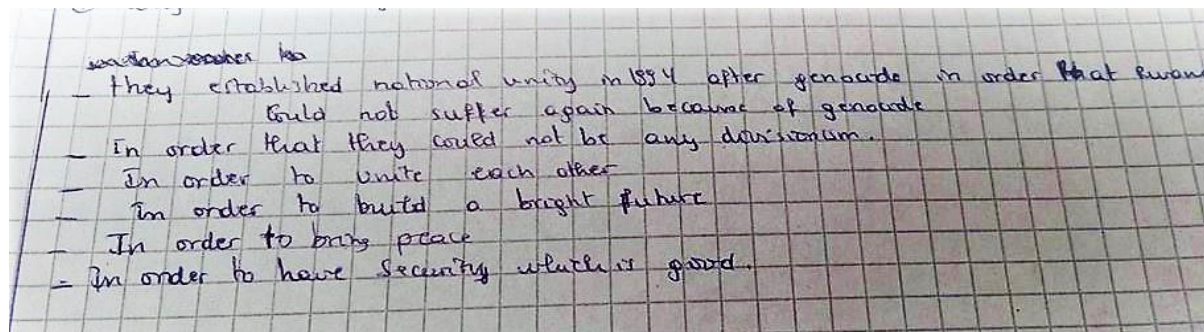 - they established national unity in 1994 after genocide in order that Rwan
could not suffer again because of genocide
- In order that they could not be any divisionism.
- In order to unite each other
- In order to build a bright future
- In order to bring peace
- In order to have security which is good.